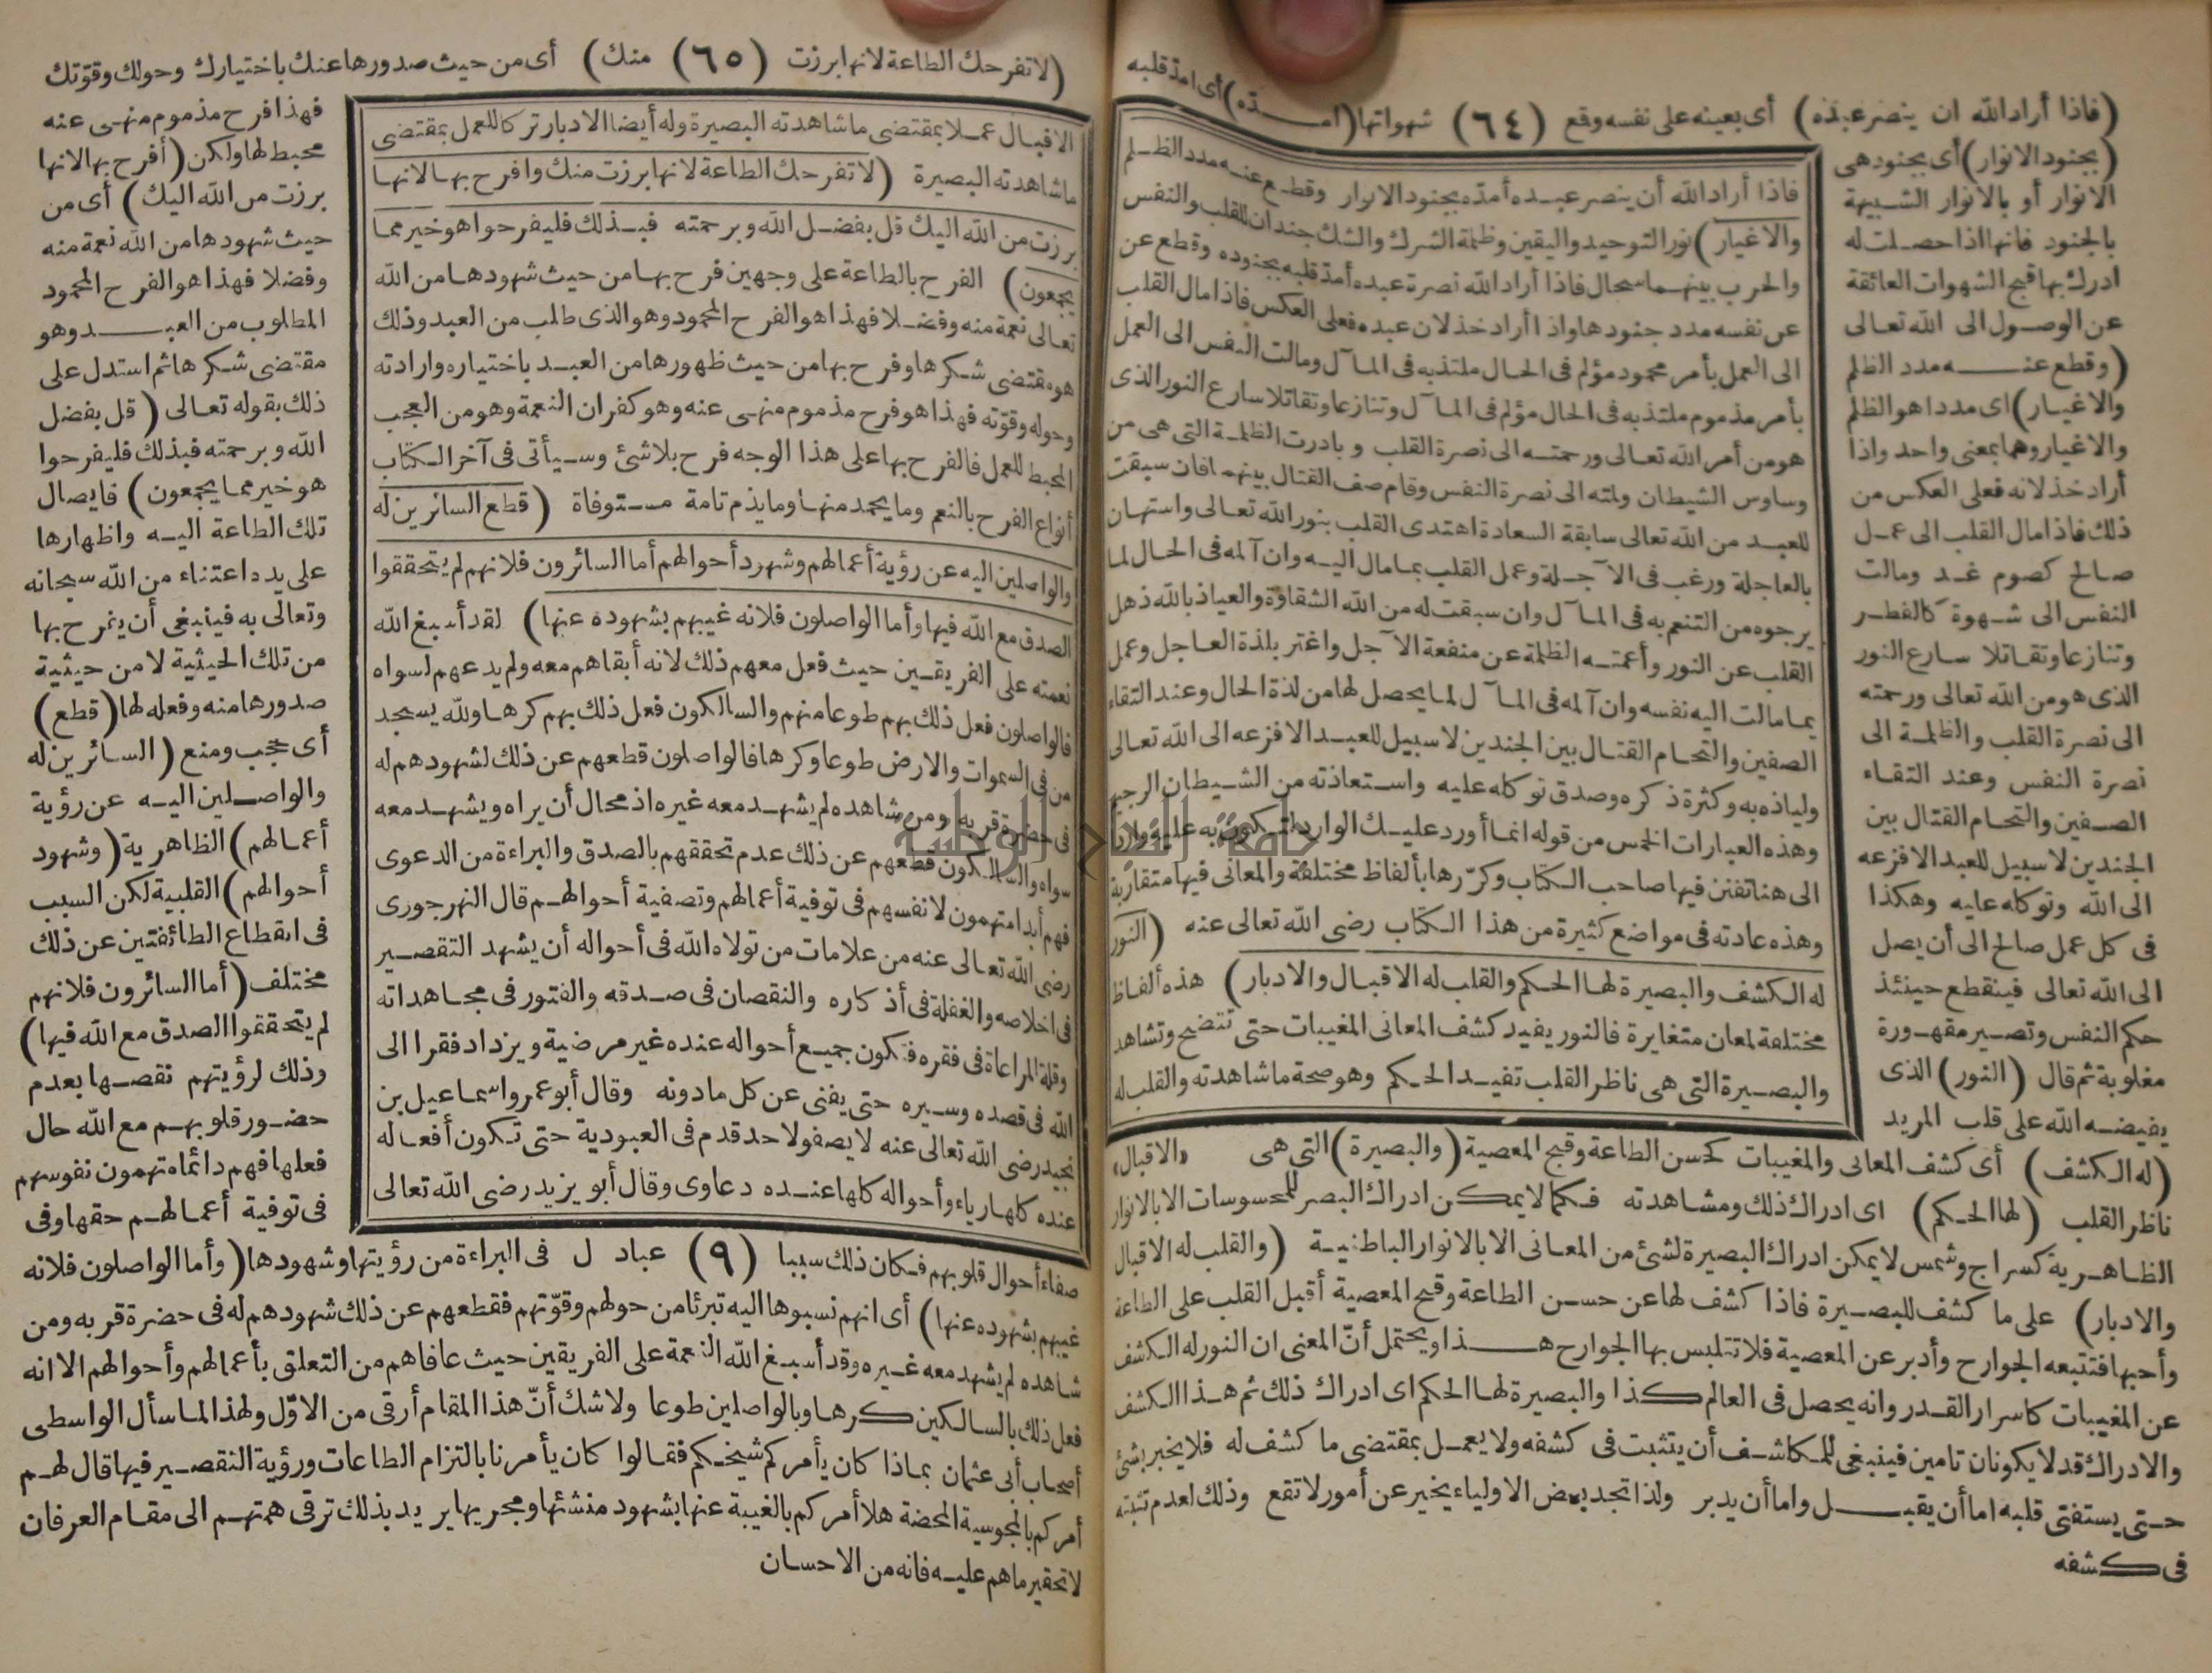 (فاذا أراد الله ان ينصر عبده) أى بعينه على نفسه وقع (٦٤) شهواتها (امـــده) أى امد قلبه
(بجنود الانوار) أى بجنود هى
الانوار أو بالانوار الشبيهة
بالجنود فانها اذا حصلت له
ادرك بها قبح الشهوات العائقة
عن الوصول الى الله تعالى
(وقطع عنه مدد الظلم
والاغيار) اى مددا هو الظلم
والاغيار وهما بمعنى واحد واذا
أراد خذلانه فعلى العكس من
ذلك فاذا مال القلب الى عمل
صالح كصوم غد ومالت
النفس الى شهوة كالفطر
وتنازعا وتقاتلا سارع النور
الذى هو من الله تعالى ورحمته
الى نصرة القلب والظلمة الى
نصرة النفس وعند التقاء
الصفين والتحام القتال بين
الجندين لا سبيل للعبد الا فزعه
الى الله وتوكله عليه وهكذا
فى كل عمل صالح الى أن يصل
الى الله تعالى فينقطع حينئذ
حكم النفس وتصير مقهورة
مغلوبة ثم قال (النور) الذى
يفيضه الله على قلب المريد
فاذا أراد الله أن ينصر عبده أمده بجنود الانوار وقطع عنه مدد الظلم
والاغيار) نور التوحيد واليقين وظلمة الشرك والشك جندان للقلب والنفس
والحرب بينهما سجال فاذا أراد الله نصرة عبده أمد قلبه بجنوده وقطع عن
عن نفسه مدد جنودها واذا أراد خذلان عبده فعلى العكس فاذا مال القلب
الى العمل بأمر محمود مؤلم فى الحال ملتذ به فى المآل ومالت النفس الى العمل
بأمر مذموم ملتذ به فى الحال مؤلم فى المآل وتنازعا وتقاتلا سارع النور الذى
هو من أمر الله تعالى ورحمته الى نصرة القلب وبادرت الظلمة التى هى من
وساوس الشيطان ولمته الى نصرة النفس وقام صف القتال بينهما فان سبقت
للعبد من الله تعالى سابقة السعادة اهتدى القلب بنور الله تعالى واستهان
بالعاجلة ورغب فى الآجلة وعمل القلب بما مال اليه وان آلمه فى الحال لما
يرجوه من التنعم به فى المآل وان سبقت له من الله الشقاوة والعياذ بالله ذهل
القلب عن النور وأعمته الظلمة عن منفعة الآجل واغتر بلذة العاجل وعمل
بما مالت اليه نفسه وان آلمه فى المآل لما يحصل لها من لذة الحال وعند التقاء
الصفين والتحام القتال بين الجندين لا سبيل للعبد الا فزعه الى الله تعالى
ولياذه به وكثرة ذكره وصدق توكله عليه واستعاذته من الشيطان الرجيم
وهذه العبارات الخمس من قوله انما أورد عليك الوارد لتكون به عليه واردا
الى هنا تفنن فيها صاحب الكتاب وكررها بألفاظ مختلفة والمعانى فيها متقاربة
وهذه عادته فى مواضع كثيرة من هذا الكتاب رضى الله تعالى عنه (النور
له الكشف والبصيرة لها الحكم والقلب له الاقبال والادبار) هذه ألفاظ
مختلفة لمعان متغايرة فالنور يفيد كشف المعانى المغيبات حتى تتضح وتشاهد
والبصيرة التى هى ناظر القلب تفيد الحكم وهو صحة ما شاهدته والقلب له
(له الكشف) أى كشف المعانى والمغيبات كحسن الطاعة وقبح المعصية (والبصيرة) التى هى «الاقبال»
ناظر القلب (لها الحكم) اى ادراك ذلك ومشاهدته فكما لا يمكن ادراك البصر للمحسوسات الا بالانوار
الظاهرية كسراج وشمس لا يمكن ادراك البصيرة لشئ من المعانى الا بالانوار الباطنية (والقلب له الاقبال
والادبار) على ما كشف للبصيرة فاذا كشف لها عن حسن الطاعة وقبح المعصية أقبل القلب على الطاعة
وأحبها فتتبعه الجوارح وأدبر عن المعصية فلا تتلبس بها الجوارح هذا ويحتمل أنّ المعنى ان النور له الكشف
عن المغيبات كاسرار القدر وانه يحصل فى العالم كذا والبصيرة لها الحكم اى ادراك ذلك ثم هذا الكشف
والادراك قد لا يكونان تامين فينبغى للمكاشف أن يتثبت فى كشفه ولا يعمل بمقتضى ما كشف له فلا يخبر بشئ
حتى يستفتى قلبه اما أن يقبل واما أن يدبر ولذا تجد بعض الاولياء يخبر عن أمور لا تقع وذلك لعدم تثبته
فى كشفه
(لا تفرحك الطاعة لانها برزت (٦٥) منك) أى من حيث صدورها عنك باختيارك وحولك وقوّتك
الاقبال عملا بمقتضى ما شاهدته البصيرة وله أيضا الادبار تركا للعمل بمقتضى
ما شاهدته البصيرة (لا تفرحك الطاعة لانها برزت منك وافرح بها لانها
برزت من الله اليك قل بفضل الله وبرحمته فبذلك فليفرحوا هو خير مما
يجمعون) الفرح بالطاعة على وجهين فرح بها من حيث شهودها من الله
تعالى نعمة منه وفضلا فهذا هو الفرح المحمود وهو الذى طلب من العبد وذلك
هو مقتضى شكرها وفرح بها من حيث ظهورها من العبد باختياره وارادته
وحوله وقوّته فهذا هو فرح مذموم منهى عنه وهو كفران النعمة وهو من العجب
المحبط للعمل فالفرح بها على هذا الوجه فرح بلا شئ وسيأتى فى آخر الكتاب
أنواع الفرح بالنعم وما يحمد منها وما يذم تامة مستوفاة (قطع السائرين له
والواصلين اليه عن رؤية أعمالهم وشهود أحوالهم أما السائرون فلانهم لم يتحققوا
الصدق مع الله فيها وأما الواصلون فلانه غيبهم بشهوده عنها) لقد أسبغ الله
نعمته على الفريقين حيث فعل معهم ذلك لانه أبقاهم معه ولم يدعهم لسواه
فالواصلون فعل ذلك بهم طوعا منهم والسالكون فعل ذلك بهم كرها ولله يسجد
من فى السموات والارض طوعا وكرها فالواصلون قطعهم عن ذلك لشهودهم له
فى حضرة قربه ومن شاهده لم يشهد معه غيره اذ محال أن يراه ويشهد معه
سواه والسالكون قطعهم عن ذلك عدم تحققهم بالصدق والبراءة من الدعوى
فهم أبدا متهمون لانفسهم فى توفية أعمالهم وتصفية أحوالهم قال النهرجورى
رضى الله تعالى عنه من علامات من تولاه الله فى أحواله أن يشهد التقصير
فى اخلاصه والغفلة فى أذكاره والنقصان فى صدقه والفتور فى مجاهداته
وقلة المراعاة فى فقره فتكون جميع أحواله عنده غير مرضية ويزداد فقرا الى
الله فى قصده وسيره حتى يفنى عن كل ما دونه وقال أبو عمرو اسماعيل بن
نجيد رضى الله تعالى عنه لا يصفو لاحد قدم فى العبودية حتى تكون أفعاله
عنده كلها رياء وأحواله كلها عنده دعاوى وقال أبو يزيد رضى الله تعالى
فهذا فرح مذموم منهى عنه
محبط لها ولكن (أفرح بها لانها
برزت من الله اليك) أى من
حيث شهودها من الله نعمة منه
وفضلا فهذا هو الفرح المحمود
المطلوب من العبد وهو
مقتضى شكرها ثم استدل على
ذلك بقوله تعالى (قل بفضل
الله وبرحمته فبذلك فليفرحوا
هو خير مما يجمعون) فايصال
تلك الطاعة اليه واظهارها
على يده اعتناء من الله سبحانه
وتعالى به فينبغى أن يفرح بها
من تلك الحيثية لا من حيثية
صدورها منه وفعله لها (قطع)
أى حجب ومنع (السائرين له
والواصلين اليه عن رؤية
أعمالهم) الظاهرية (وشهود
أحوالهم) القلبية لكن السبب
فى انقطاع الطائفتين عن ذلك
مختلف (أما السائرون فلانهم
لم يتحققوا الصدق مع الله فيها)
وذلك لرؤيتهم نقصها بعدم
حضور قلوبهم مع الله حال
فعلها فهم دائما متهمون نفوسهم
فى توفية أعمالهم حقها وفى
صفاء أحوال قلوبهم فكان ذلك سببا (٩) عباد ل فى البراءة من رؤيتها وشهودها (وأما الواصلون فلانه
غيبهم بشهوده عنها) أى انهم نسبوها اليه تبرئا من حولهم وقوّتهم فقطعهم عن ذلك شهودهم له فى حضرة قربه ومن
شاهده لم يشهد معه غيره وقد أسبغ الله النعمة على الفريقين حيث عافاهم من التعلق بأعمالهم وأحوالهم الا انه
فعل ذلك بالسالكين كرها وبالواصلين طوعا ولا شك أنّ هذا المقام أرقى من الاوّل ولهذا لما سأل الواسطى
أصحاب أبى عثمان بماذا كان يأمركم شيخكم فقالوا كان يأمرنا بالتزام الطاعات ورؤية التقصير فيها قال لهم
أمركم بالمجوسية المحضة هلا أمركم بالغيبة عنها بشهود منشئها ومجريها يريد بذلك ترقى همتهم الى مقام العرفان
لا تحقير ما هم عليه فانه من الاحسان
جامعة النجاح الوطنية